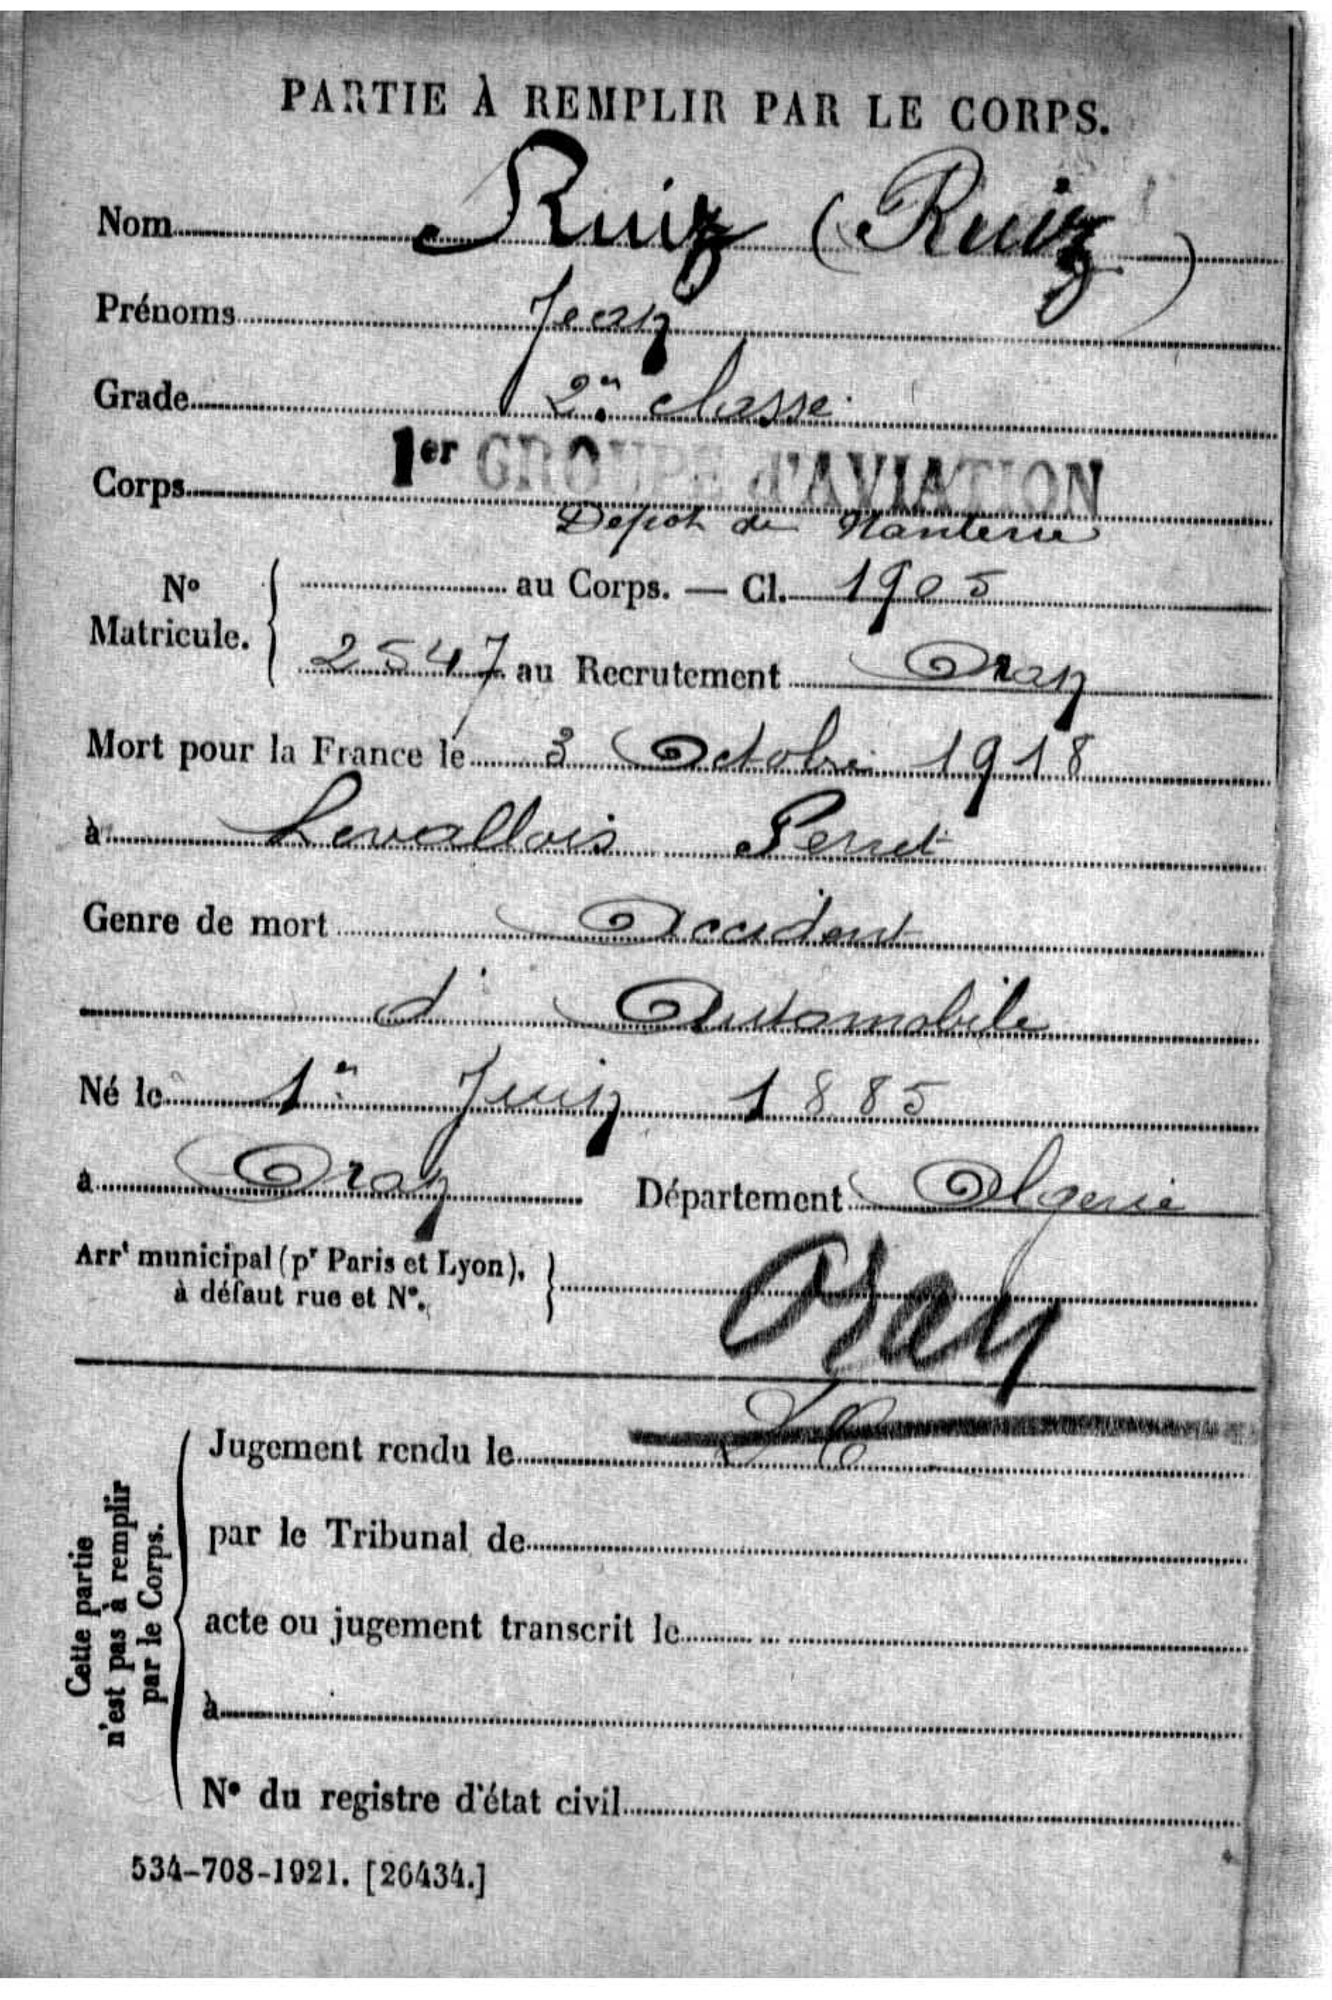 PARTIE À REMPLIR PAR LE CORPS.
Nom Ruiz (Ruiz)
Prénoms Jean
Grade 2e classe
Corps 1er GROUPE d'AVIATION
Depot de Nanterre
No Matricule. { au Corps. — Cl. 1905
2547 au Recrutement Oran
Mort pour la France le 3 Octobre 1918
à Levallois Perret
Genre de mort Accident
d' Automobile
Né le 1er Juin 1885
à Oran Département Algerie
Arrt municipal (pr Paris et Lyon), à défaut rue et No. }
Oran
Cette partie n'est pas à remplir par le Corps.
Jugement rendu le
par le Tribunal de
acte ou jugement transcrit le
à
No du registre d'état civil
534-708-1921. [26434.]